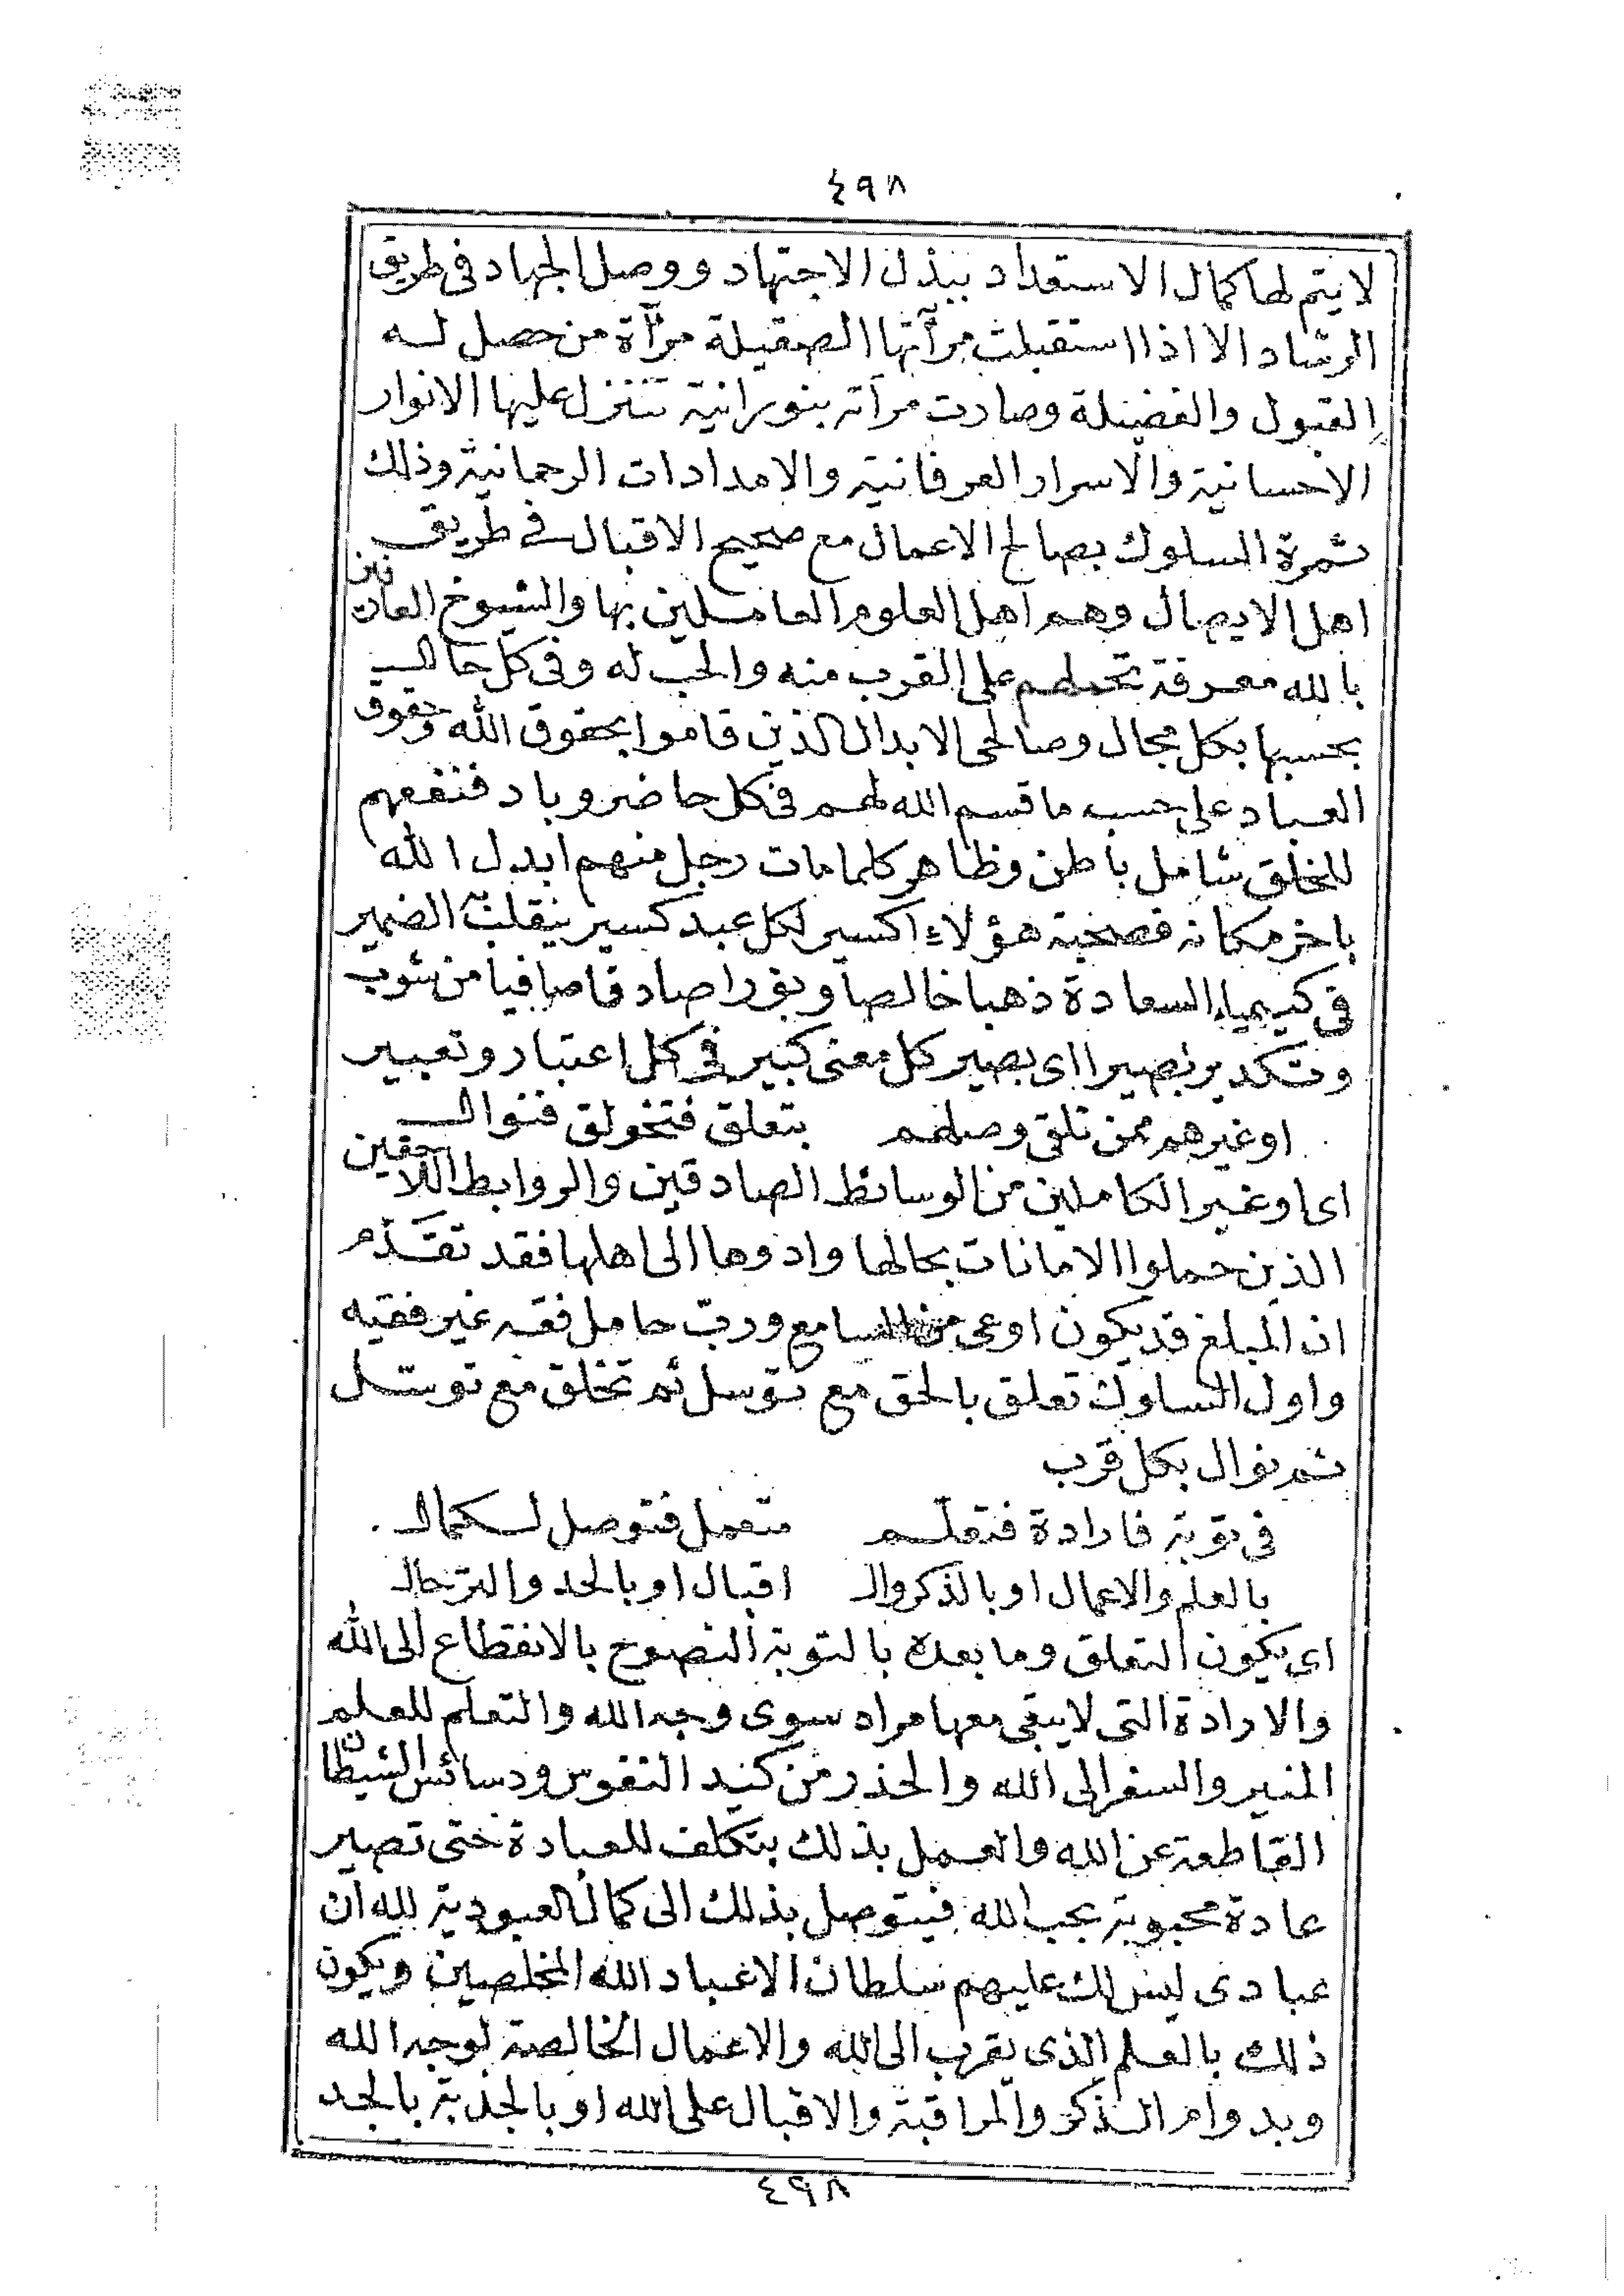 ٤٩٨
لا يتم لها كمال الاستعداد ببذل الاجتهاد ووصل الجهاد فى طريق
الرشاد الا اذا استقبلت مرآتها الصقيلة مرآة من حصل له
القبول والفضيلة وصارت مرآته بنورانية تتنزل عليها الانوار
الاحسانية والاسرار العرفانية والامدادات الرحمانية وذلك
ثمرة السلوك بصالح الاعمال مع صحيح الاقبال فى طريق
اهل الايصال وهم اهل العلوم العاملين بها والشيوخ العارفين
بالله معرفة تحملهم على القرب منه والحب له وفى كل حال
بحسبها بكل مجال وصالحى الابدال الذين قاموا بحقوق الله وحقوق
العباد على حسب ما قسم الله لهم فى كل حاضر وباد فنفعهم
للخلق شامل باطن وظاهر كلما مات رجل منهم ابدل الله
باخر مكانه فصحبة هؤلاء اكسير لكل عبد كسير ينقلب الضمير
فى كيمياء السعادة ذهبا خالصا ونورا صادقا صافيا من شوب
وتكدير بصيرا اى بصير كل معنى كبير فى كل اعتبار وتعبير
او غيرهم ممن تلقى وصلهم بتعلق فتخولق فنوال
اى او غير الكاملين من الوسائط الصادقين والروابط اللاحقين
الذين حملوا الامانات بحالها وادوها الى اهلها فقد تقدم
ان المبلغ قد يكون اوعى من السامع ورب حامل فقه غير فقيه
واول السلوك تعلق بالحق مع توسل ثم تخلق مع توسل
ثم نوال بكل قرب
فى توبة فارادة فتعلم متعمل فتوصل لكمال
بالعلم والاعمال او بالذكر وال اقبال او بالجد والترحال
اى يكون التعلق وما بعده بالتوبة النصوح بالانقطاع الى الله
والارادة التى لا يبقى معها مراد سوى وجه الله والتعلم للعلم
المنير والسفر الى الله والحذر من كيد النفوس ودسائس الشيطان
القاطعة عن الله والعمل بذلك بتكلف للعبادة حتى تصير
عادة محبوبة بحب الله فيتوصل بذلك الى كمال العبودية لله ان
عبادى ليس لك عليهم سلطان الا عباد الله المخلصين ويكون
ذلك بالعلم الذى يقرب الى الله والاعمال الخالصة لوجه الله
وبدوام الذكر والمراقبة والاقبال على الله او بالجذبة بالجد
٤٩٨